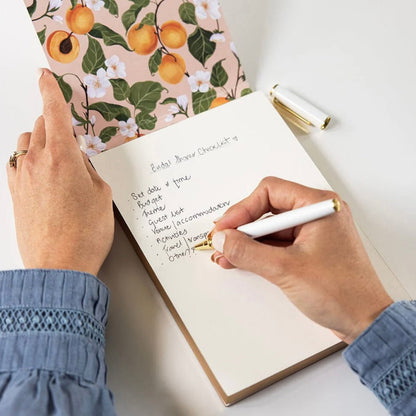 Bridal Shower Checklist ♡
· Set date + time
· Budget
· Theme
· Guest list
· Venue/accommodation
· Activities
· Travel/transp
· Other